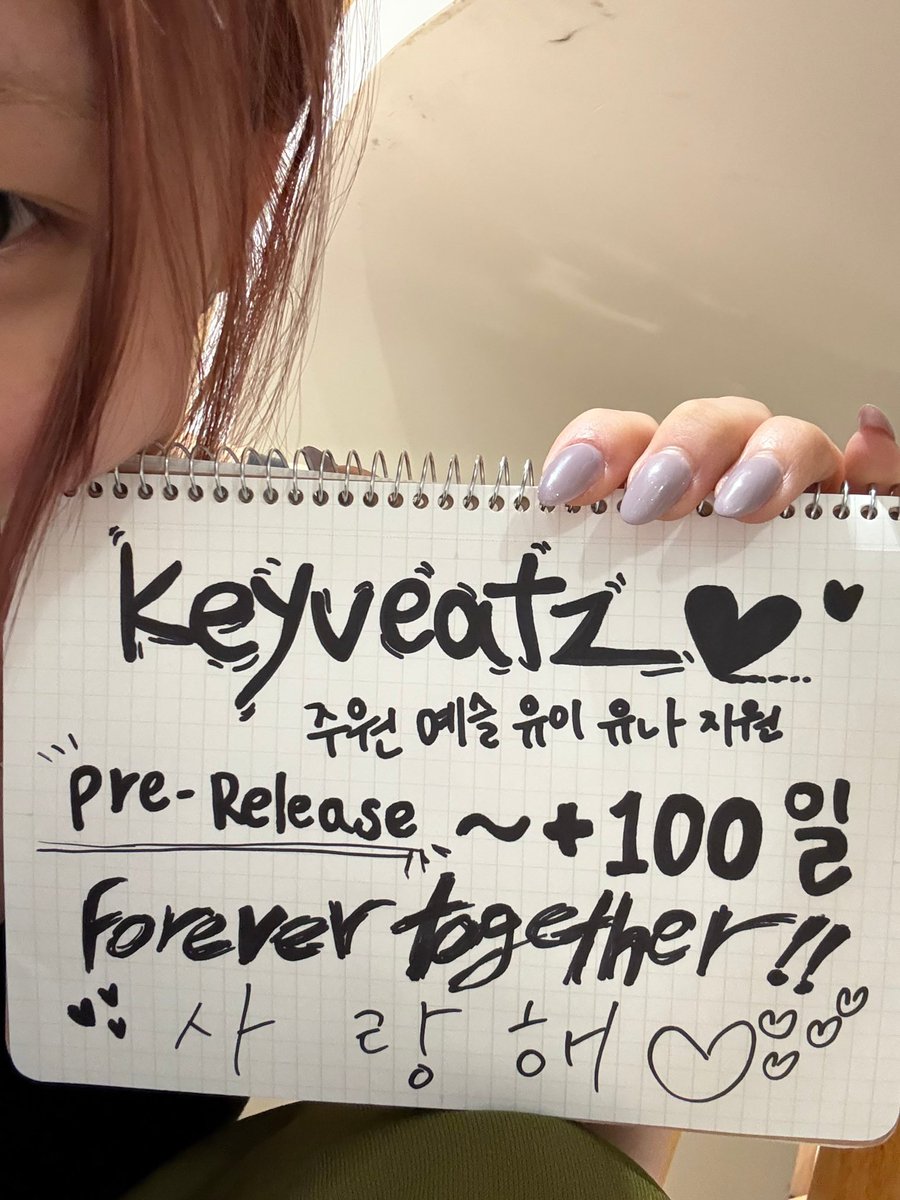 Keyveatz
주원 예슬 유이 유나 지원
pre-Release ~+100일
forever together!!
사랑해